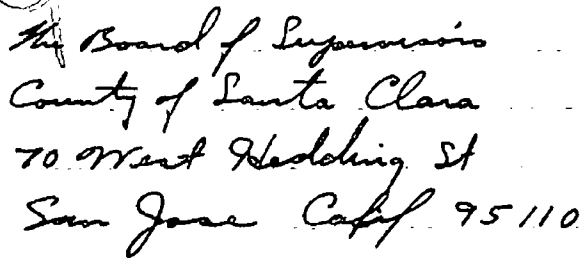 The Board of Supervisors
County of Santa Clara
70 West Hedding St
San Jose Calif 95110